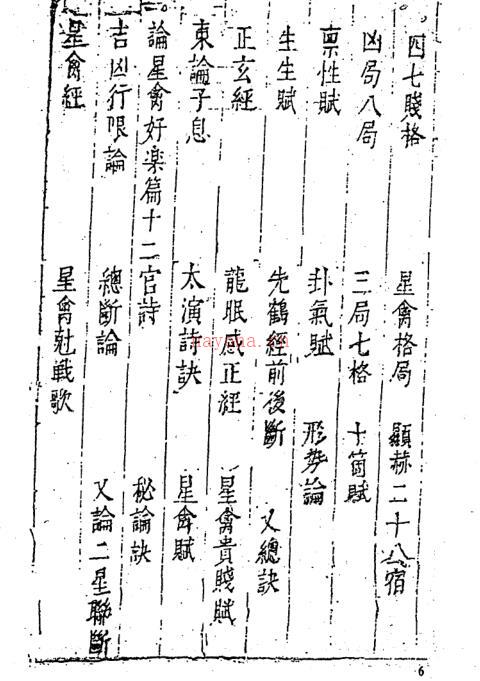 四七賤格 星禽格局 顯赫二十八宿
凶局八局 三局七格 十箇賦
禀性賦 卦氣賦 形势論
生生賦 先鶴經前後斷 又總訣
正玄經 龍眠感正經 星禽貴賤賦
東論子息 太演詩訣 星禽賦
論星禽好楽篇十二官詩 秘論訣
吉凶行限論 總斷論 又論二星聯斷
星禽經 星禽尅戦歌
6